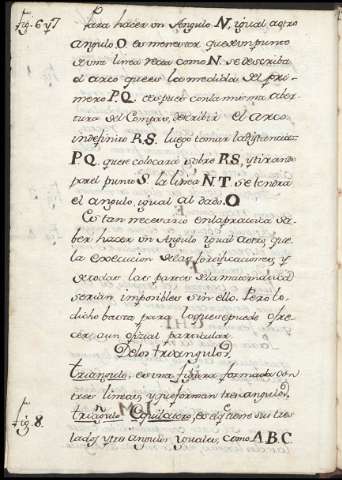 fig. 6 y 7
Para hacer un Angulo N, igual a otro
angulo O es menester que de un punto
de una linea recta como N. se describa
el arco que es la medida del pri-
mero PQ. después con la misma aber-
tura del Compas, describir el arco
indefinito RS. luego tomar la distancia
PQ. que se colocará sobre RS, y tirando
por el punto S la linea NT se tendrá
el angulo, igual al dado. O
Es tan necesario en la practica sa-
ber hacer un Angulo igual a otro, que
la execucion de las fortificaciones, y
de todas las partes de la matematica
serian imposibles sin ello. Pero lo
dicho basta para lo que se puede ofre-
cer, a un ofizial particular
De los triangulos,
triangulo, es una figura formada con
tres lineas, y que forman tres angulos,
fig. 8.
triangulo Equilatero, es el q tiene sus tres
lados y tres angulos yguales, como ABC